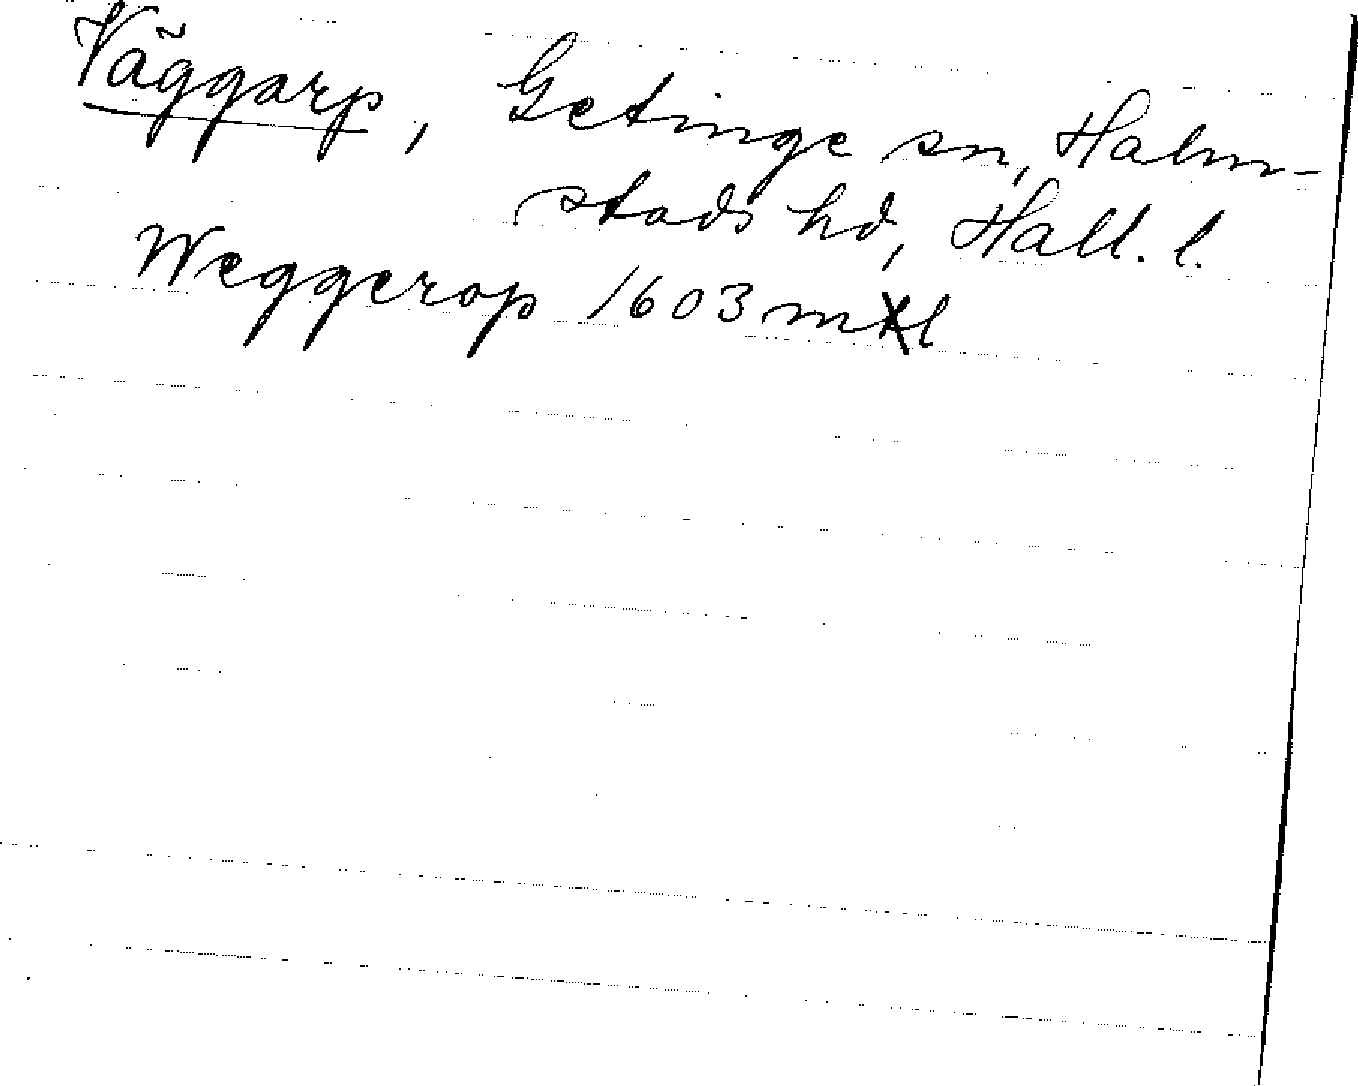 Väggarp, Getinge sn, Halm-
stads hd, Hall. l.
Weggerop 1603 mtl